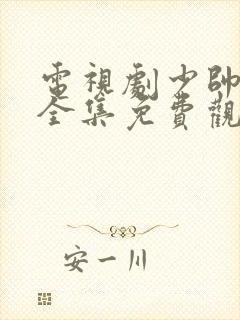 電視劇少帥
全集免費觀
安一川